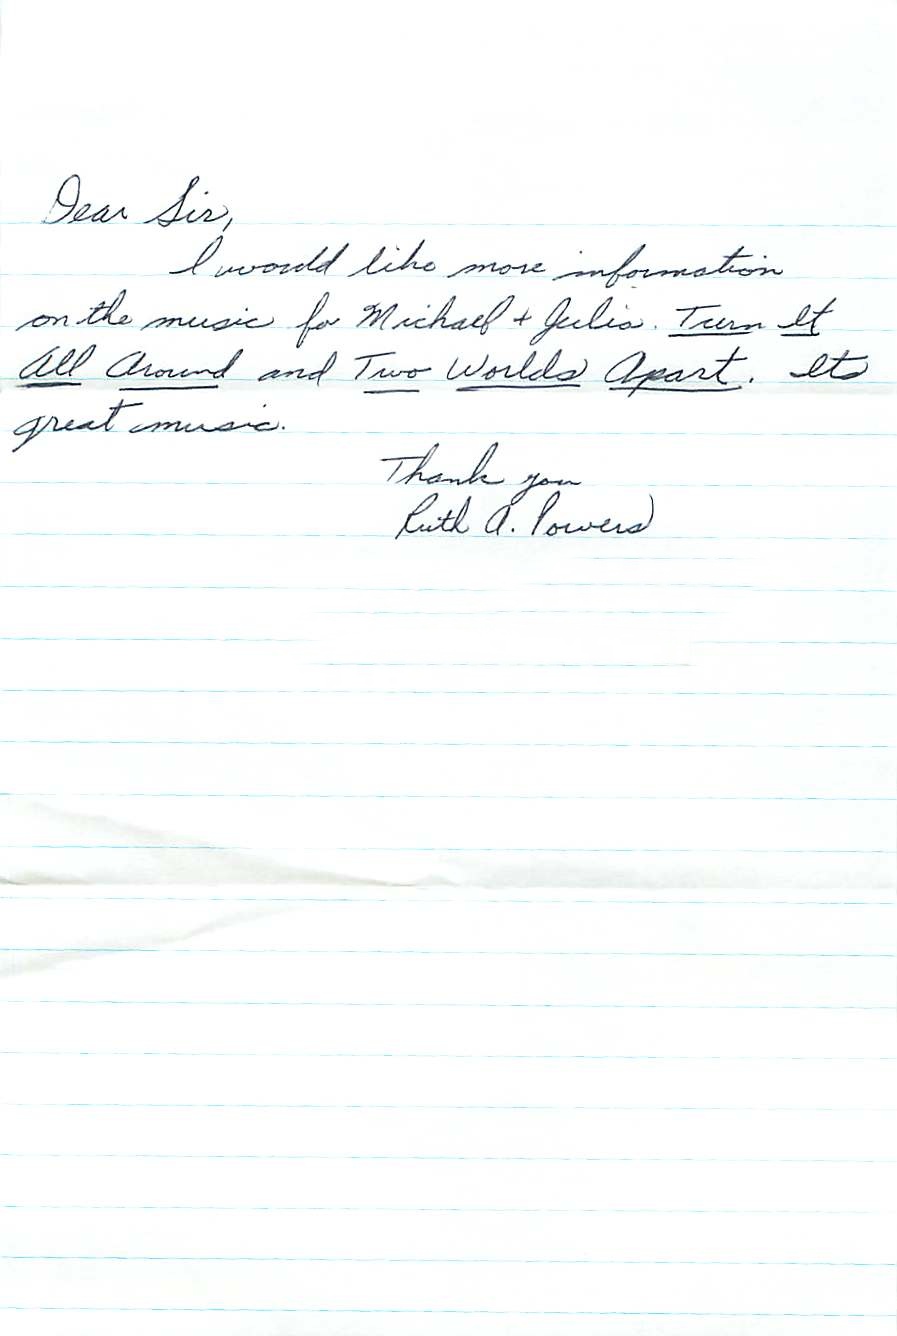 Dear Sir,
I would like more information
on the music for Michael + Julia. Turn It
All Around and Two Worlds Apart. Its
great music.
Thank you
Ruth A. Powers